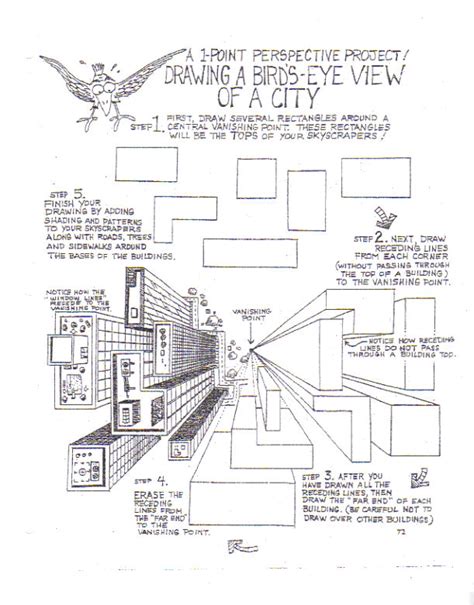 A 1-POINT PERSPECTIVE PROJECT!
DRAWING A BIRD'S-EYE VIEW
OF A CITY
STEP 1. FIRST, DRAW SEVERAL RECTANGLES AROUND A
CENTRAL VANISHING POINT. THESE RECTANGLES
WILL BE THE TOPS OF YOUR SKYSCRAPERS!
STEP 5.
FINISH YOUR
DRAWING BY ADDING
SHADING AND PATTERNS
TO YOUR SKYSCRAPERS
ALONG WITH ROADS, TREES
AND SIDEWALKS AROUND
THE BASES OF THE BUILDINGS.
STEP 2. NEXT, DRAW
RECEDING LINES
FROM EACH CORNER
(WITHOUT PASSING THROUGH
THE TOP OF A BUILDING)
TO THE VANISHING POINT.
NOTICE HOW THE
"WINDOW LINES"
RECEDE TO THE
VANISHING POINT.
VANISHING
POINT
NOTICE HOW RECEDING
LINES DO NOT PASS
THROUGH A BUILDING TOP.
STEP 4.
ERASE THE
RECEDING
LINES FROM
THE "FAR END"
TO THE
VANISHING POINT.
STEP 3. AFTER YOU
HAVE DRAWN ALL THE
RECEDING LINES, THEN
DRAW THE "FAR END" OF EACH
BUILDING. (BE CAREFUL NOT TO
DRAW OVER OTHER BUILDINGS)
72